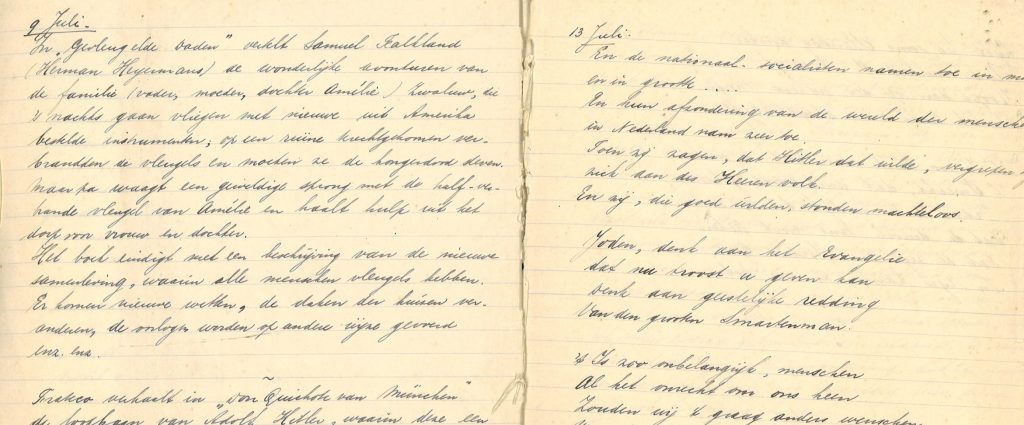 9 Juli.
In "Gevleugelde Daden" vertelt Samuel Falkland
(Herman Heyermans) de wonderlijke avonturen van
de familie (vader, moeder, dochter Amélie) Zwaluw, die
's nachts gaan vliegen met nieuwe uit Amerika
bestelde instrumenten; op een ruïne terechtgekomen ver-
brandden de vleugels en moeten ze de hongerdood sterven.
Maar pa waagt een geweldige sprong met de half-ver-
brande vleugel van Amélie en haalt hulp uit het
dorp voor vrouw en dochter.
Het boek eindigt met een beschrijving van de nieuwe
samenleving, waarin alle menschen vleugels hebben.
Er komen nieuwe wetten, de daken der huizen ver-
anderen, de oorlogen worden op andere wijze gevoerd
enz. enz.
verhaalt in "Don Quichote van München"
de loopbaan van Adolf Hitler, waarin deze een
13 Juli.
En de nationaal-socialisten namen toe in
en in grootte....
En hun afzondering van de wereld der
in Nederland nam zeer toe.
Toen zij zagen, dat Hitler dat wilde, vergrepen
zich aan des Heeren volk.
En zij, die goed wilden, stonden machteloos.
Joden, denk aan het Evangelie
dat nu troost u geven kan
Denk aan geestelijke redding
Van den grooten Smartenman.
't Is zoo onbelangrijk, menschen
Al het onrecht om ons heen
Zouden wij 't graag anders wenschen